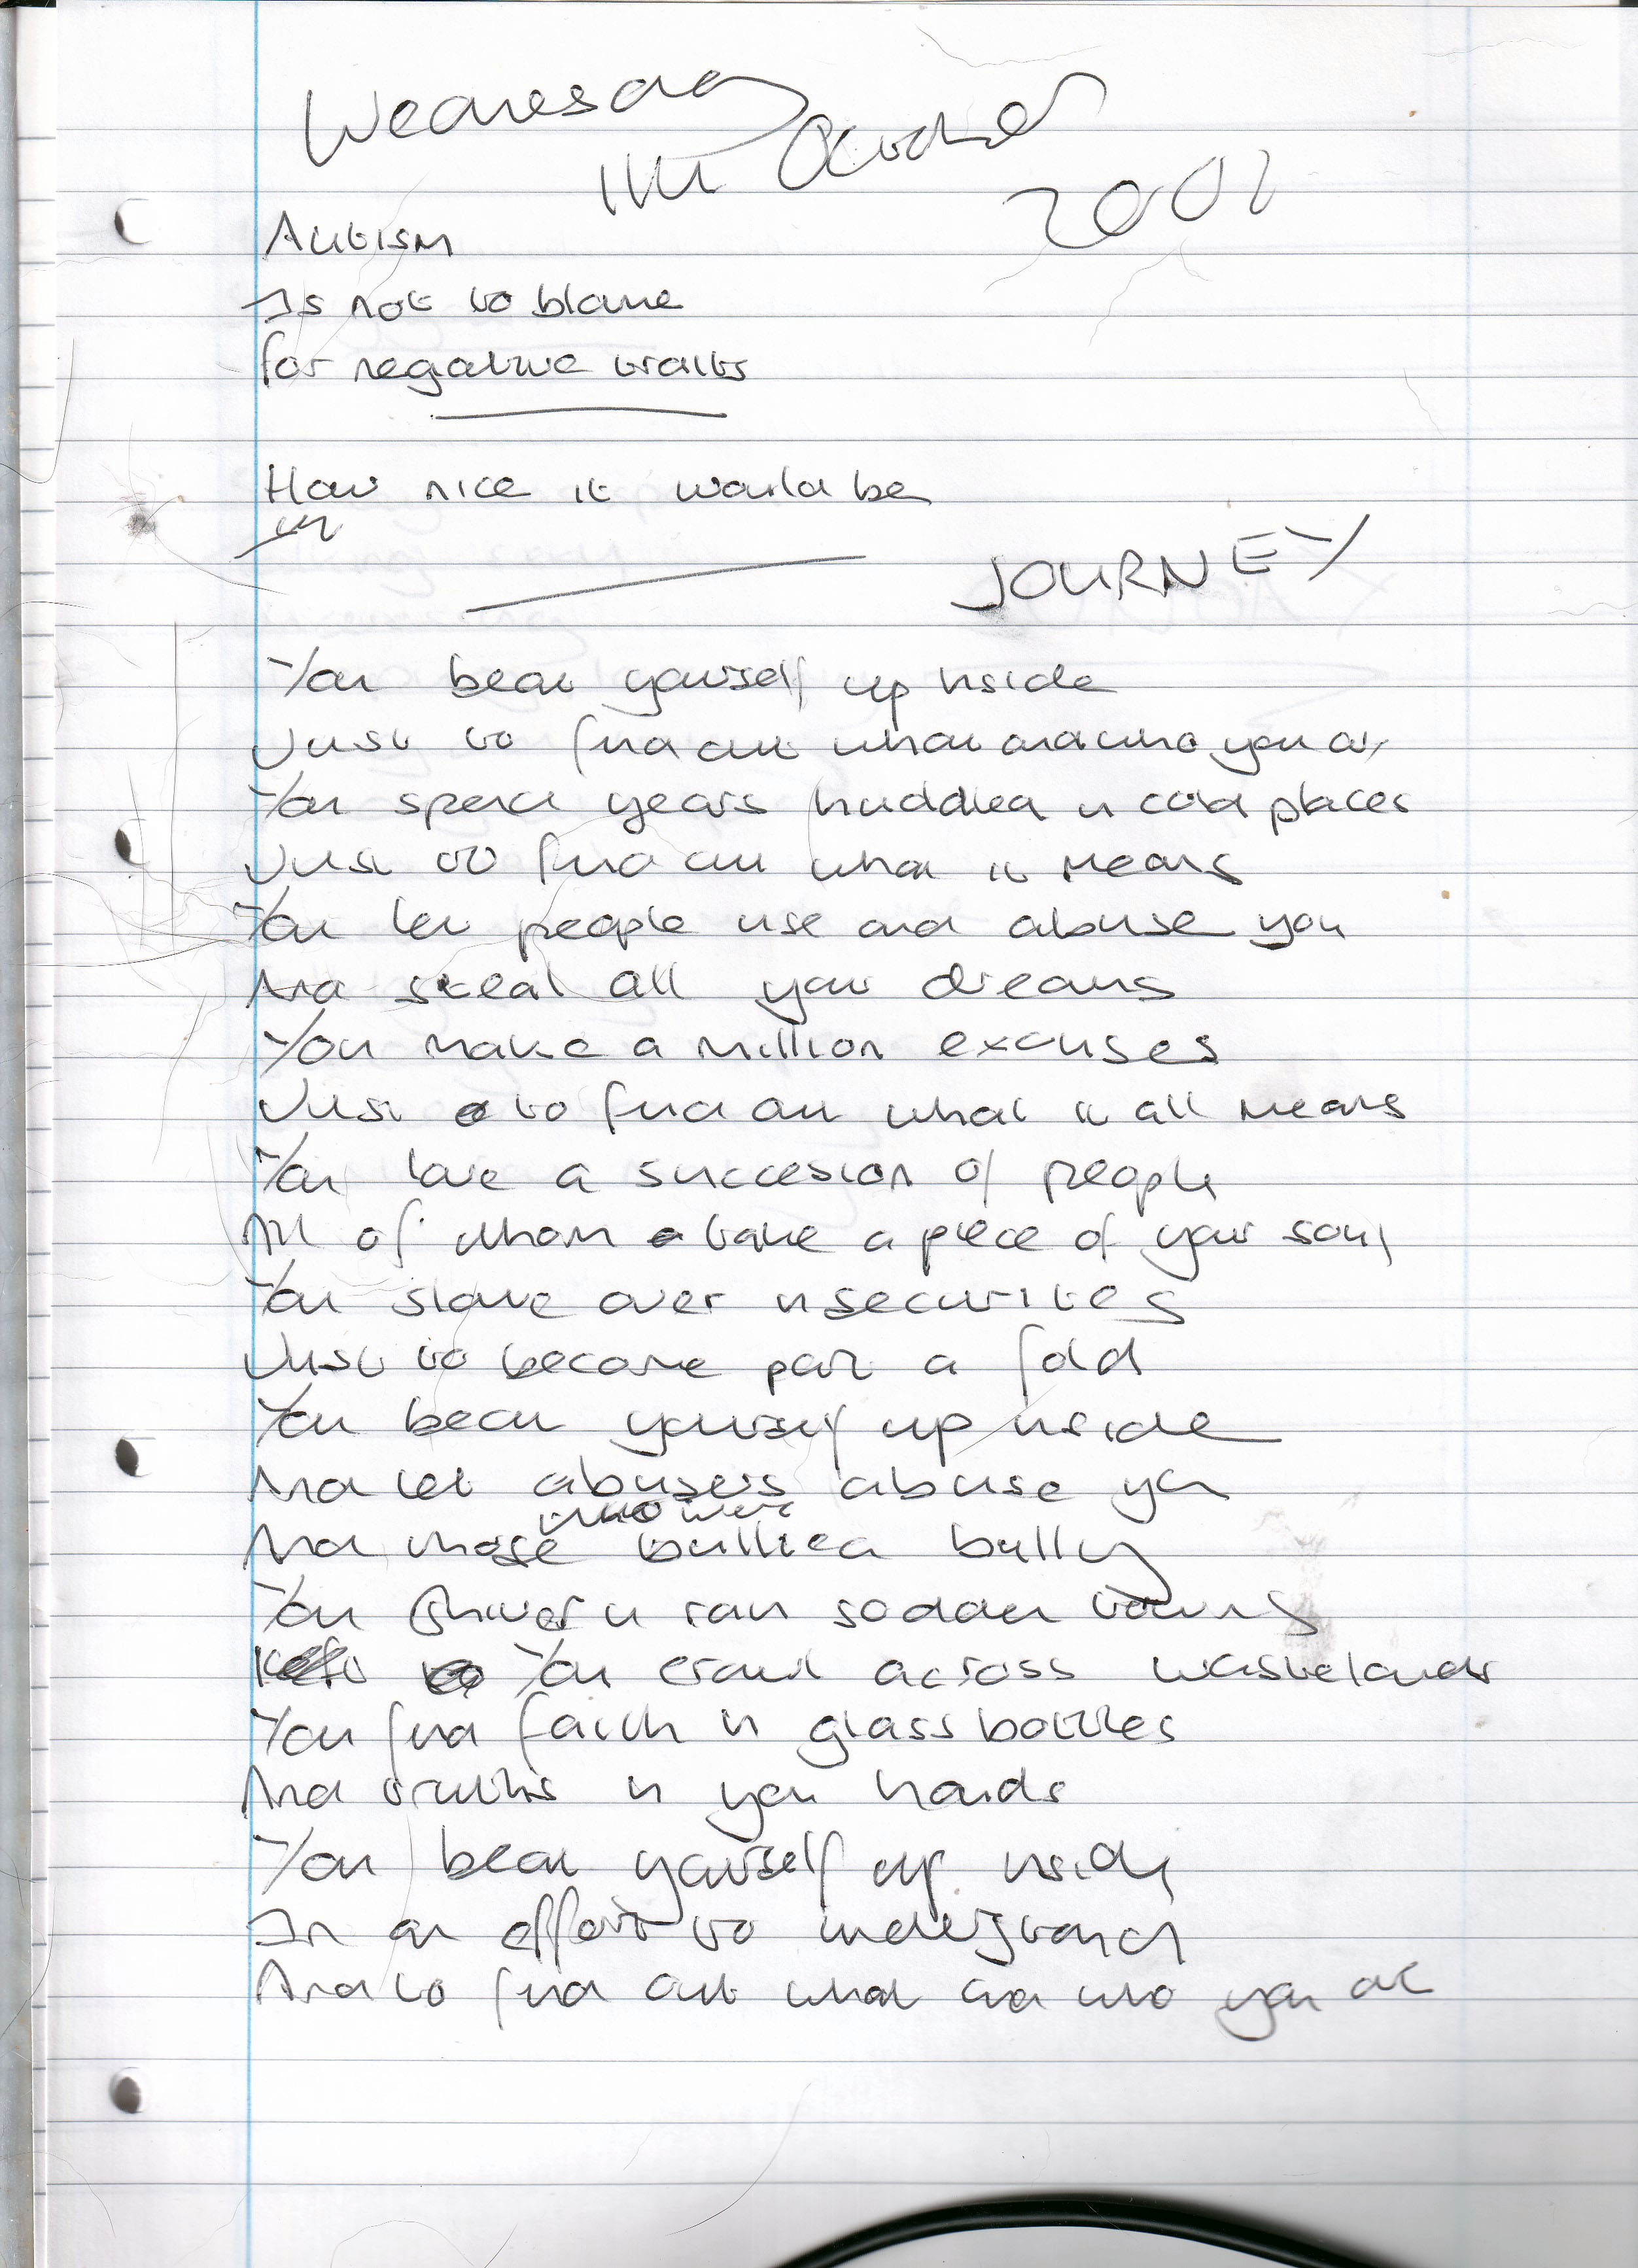 Wednesday
11th October
2001
Autism
Is not to blame
for negative traits
How nice it would be
JOURNEY
You beat yourself up inside
Just to find out what and who you are
You spend years huddled in cold places
Just to find out what it means
You let people use and abuse you
And steal all your dreams
You make a million excuses
Just to find out what it all means
You love a succesion of people
All of whom take a piece of your soul
You slave over insecurites
Just to become part a fold
You beat yourself up inside
And let abusers abuse you
who were
And those bullied bully
You shiver in rain sodden towns
You crawl across wastelands
You find faith in glass bottles
And truths in you hands
You beat yourself up inside
In an effort to understand
And to find out what and who you are